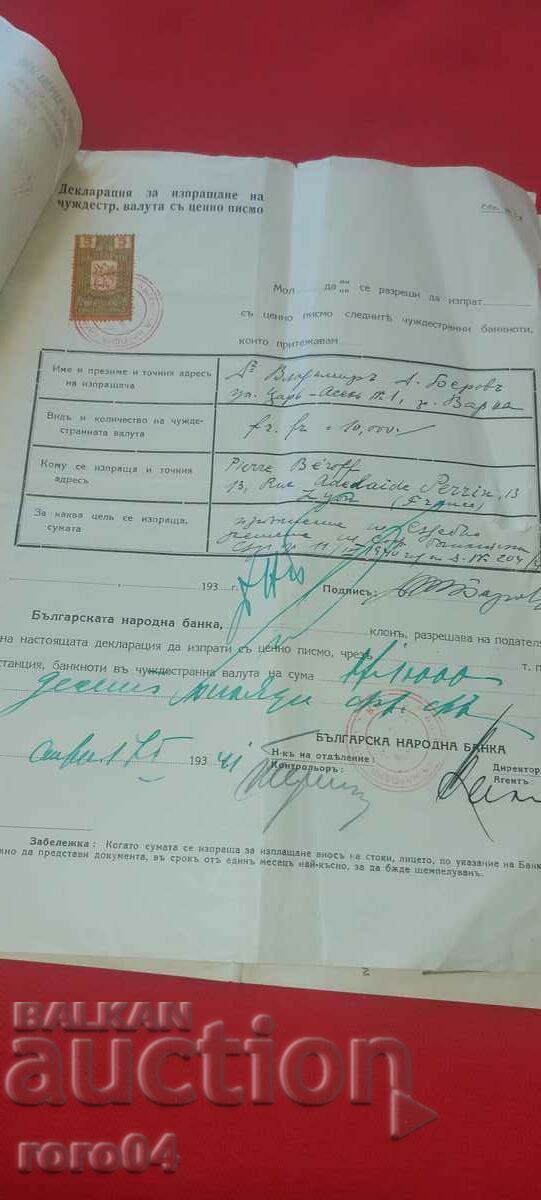 Декларация за изпращане на
чуждестр. валута съ ценно писмо
5 5
БЪЛГАРИЯ
Мол да ми се разреши да изпрат
ни
съ ценно писмо следнитѣ чуждестранни банкноти,
които притежавам
Име и презиме и точния адресъ
на изпращача
Др Владимиръ А. Беровъ
ул. Царь-Асень №1, гр. Варна
Видъ и количество на чужде-
странната валута
fr. fr = 10,000.-
Кому се изпраща и точния
адресъ
Pierre Béroff
13, Rue Adelaide Perrin, 13
Lyon (France)
За каква цель се изпраща,
сумата
193 г.
Подпись:
Българската народна банка, клонъ, разрешава на подателя
на настоящата декларация да изпрати съ ценно писмо, чрезъ т. п.
станция, банкноти въ чуждестранна валута на сума 10000
десеть хиляди фр. фр.
БЪЛГАРСКА НАРОДНА БАНКА
193 41
Н-къ на отдѣление:
Контрольоръ:
Директоръ
Агентъ
Забележка: Когато сумата се изпраща за изплащане вносъ на стоки, лицето, по указание на Банк
жно да представи документа, въ срокъ отъ единъ месецъ най-късно, за да бѫде щемпелуванъ.
2
BALKAN
auction
roro04